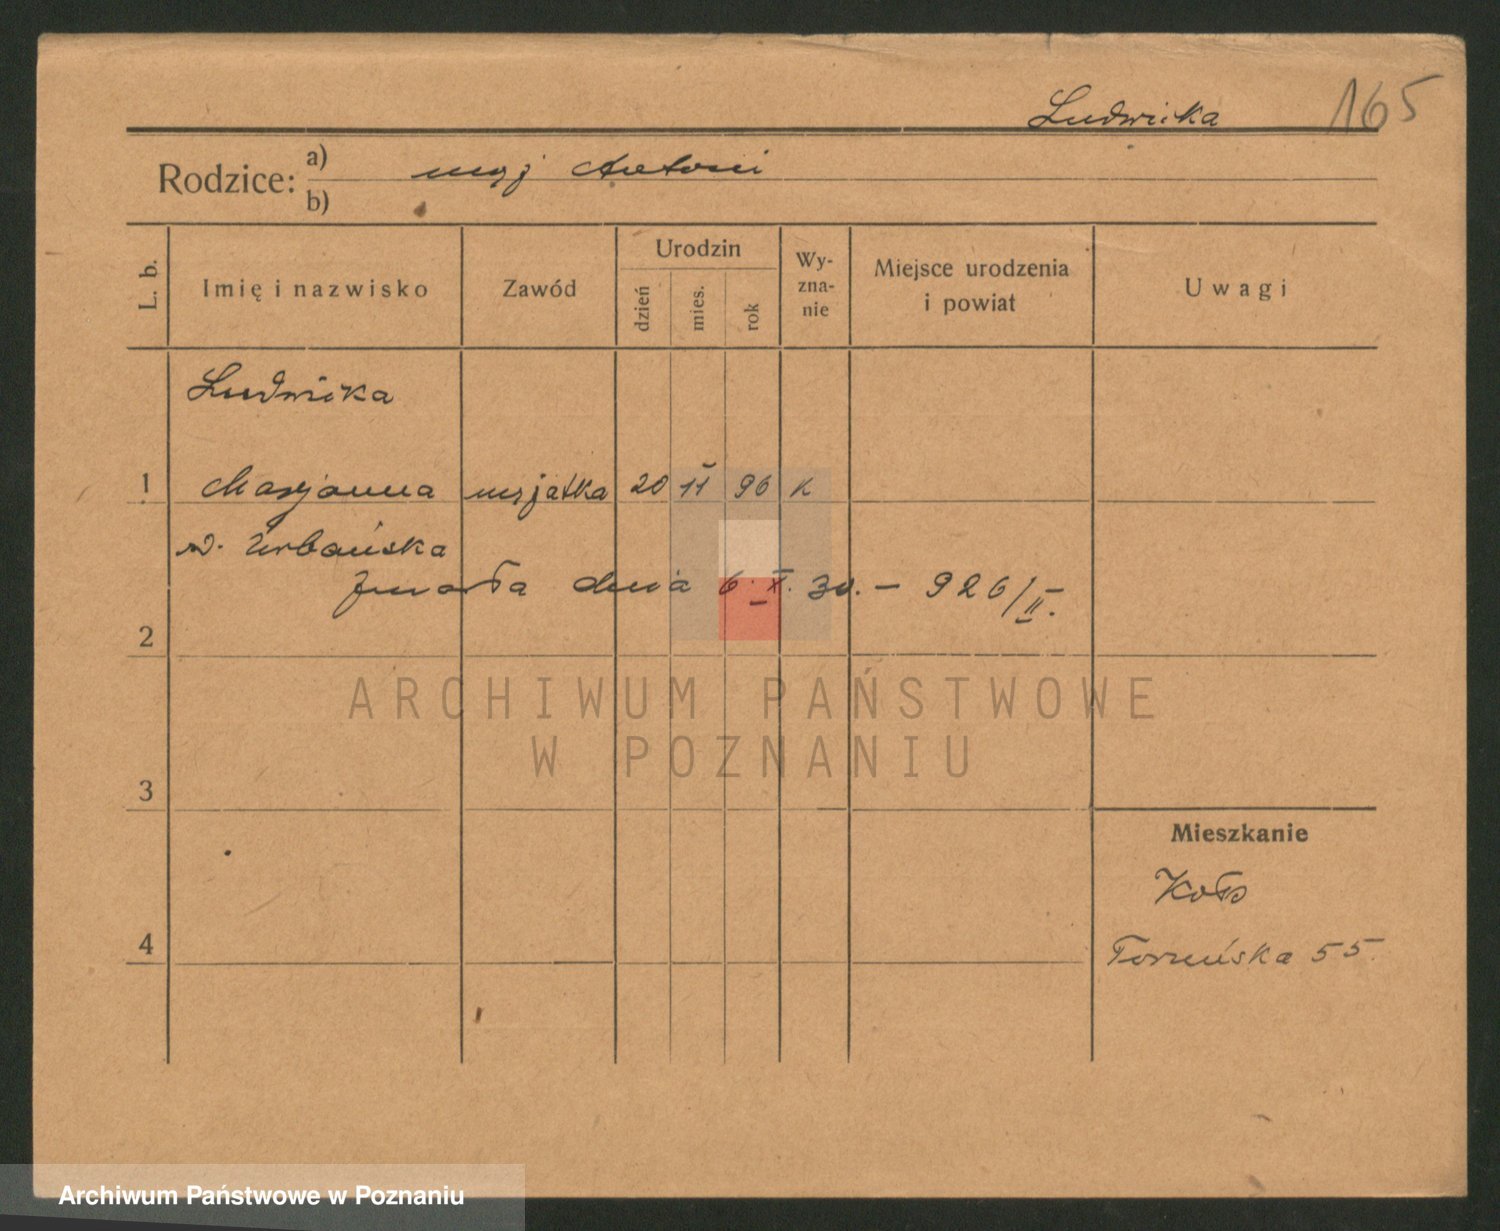 Ludwika 165
Rodzice: a) mąż Antoni
b)
L. b.
Imię i nazwisko
Zawód
Urodzin
dzień
mies.
rok
Wy-
zna-
nie
Miejsce urodzenia
i powiat
Uwagi
Ludwika
1 Marjanna mężatka 20 11 96 k
Urbańska
zmarła dnia 6.X.30. — 926/II.
2
3
4
Mieszkanie
Koło
Toruńska 55.
ARCHIWUM PAŃSTWOWE
W POZNANIU
Archiwum Państwowe w Poznaniu